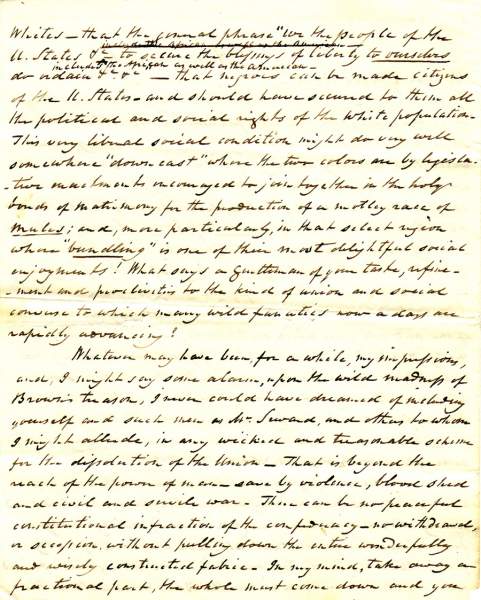 Whites – that the general phrase "we the people of the
U. States &c to secure the blessings of liberty to ourselves
include the African as well as the American –
do ordain &c &c – that negroes can be made citizens
of the U. States – and should have secured to them all
the political and social rights of the white population –
This very liberal social condition might do very well
somewhere "down east" where the two colors are by legisla-
-tive enactments encouraged to join together in the holy
bonds of matrimony for the production of a motley race of
Mules; and, more particularly, in that select region
where "bundling" is one of their most delightful social
enjoyments! What says a Gentleman of your taste, refine-
-ment and proclivities to the kind of union and social
converse to which many wild fanatics now a days are
rapidly advancing?
Whatever may have been, for a while, my impressions,
and, I might say some alarm, upon the wild madness of
Brown's treason, I never could have dreamed of including
yourself and such men as Mr. Seward, and others to whom
I might allude, in any wicked and treasonable scheme
for the dissolution of the Union – That is beyond the
reach of the power of man – save by violence, blood shed
and civil and servile war – There can be no peaceful
constitutional infraction of the confederacy – no withdrawal,
or secession, without pulling down the entire wonderfully
and wisely constructed fabric – In my mind, take away a
fractional part, the whole must come down and you